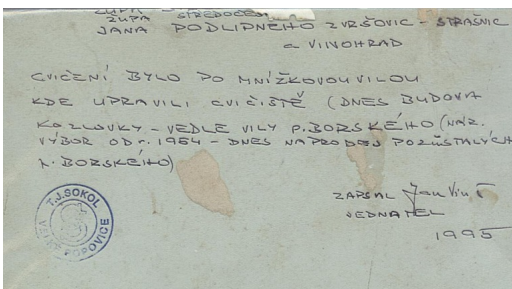 ŽUPA STŘEDOČES
JANA PODLIPNÉHO Z VRŠOVIC - STRAŠNIC
a VINOHRAD
CVIČENÍ BYLO PO MNÍŽKOVOU VILOU
KDE UPRAVILI CVIČIŠTĚ (DNES BUDOVA
KOZLOVKY - VEDLE VILY P. BORSKÉHO (NÁR.
VÝBOR OD r. 1954 - DNES NA PRODEJ POZŮSTALÝCH
BORSKÉHO)
ZAPSAL Jan
JEDNATEL
1995
T.J. SOKOL
POPOVICE